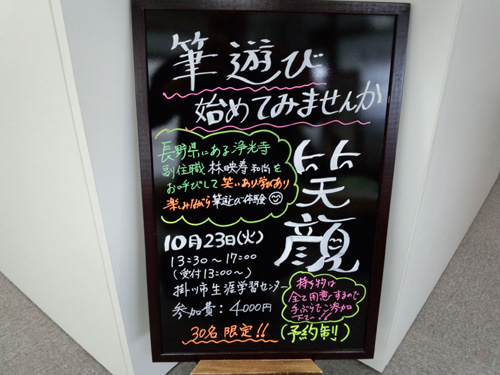 筆遊び
始めてみませんか
長野県にある浄光寺
副住職 林映寿和尚を
お呼びして 笑いあり学びあり
楽しみながら筆遊び体験
笑顔
10月23日(火)
13:30～17:00
(受付13:00～)
掛川市生涯学習センター
参加費:4000円
30名限定!!
持ち物は
全て用意するので
手ぶらでご参加
下さい!!
(予約制)